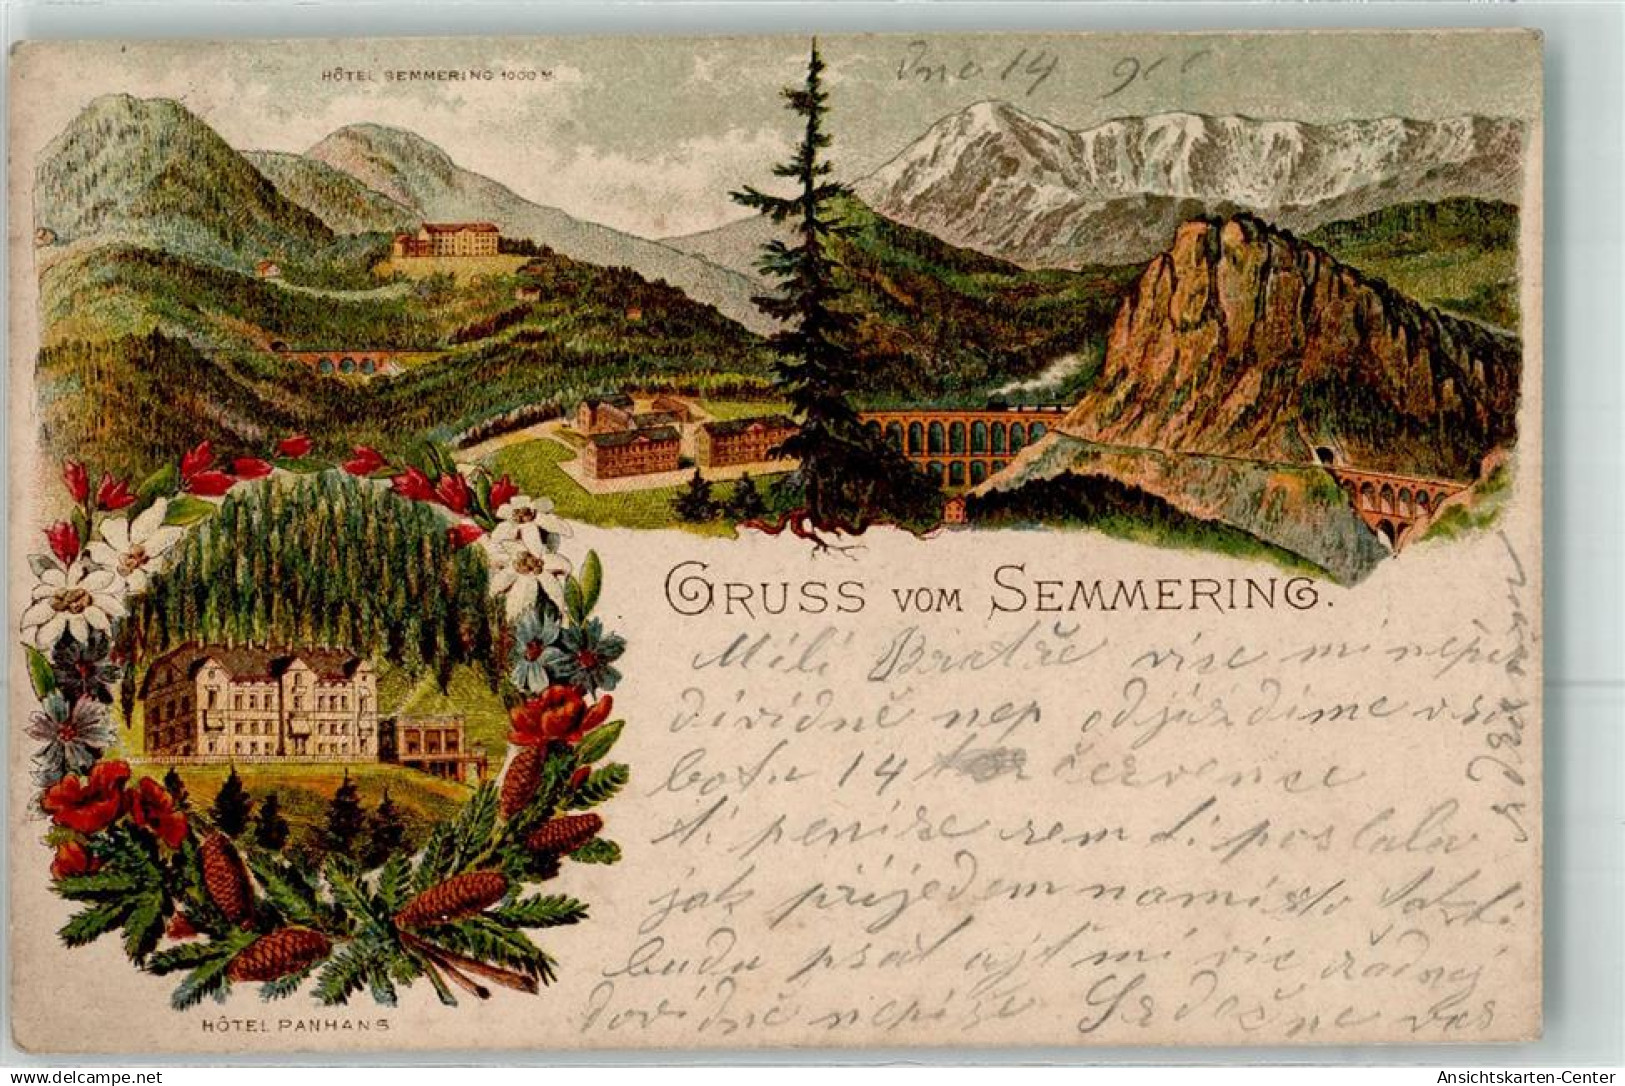 HÔTEL SEMMERING 1000 M.
dne 14 9
GRUSS VOM SEMMERING.
Milí Bratře více mi nepi
dívidně nep odjíždíme v so
botu 14 července
ti peníze sem ti poslala
jak přijedem na místo
budu psát ajť mi víc žádnej
dovidně nepíše Srdečne vas
HÔTEL PANHANS
delcampe.net
Ansichtskarten-Center